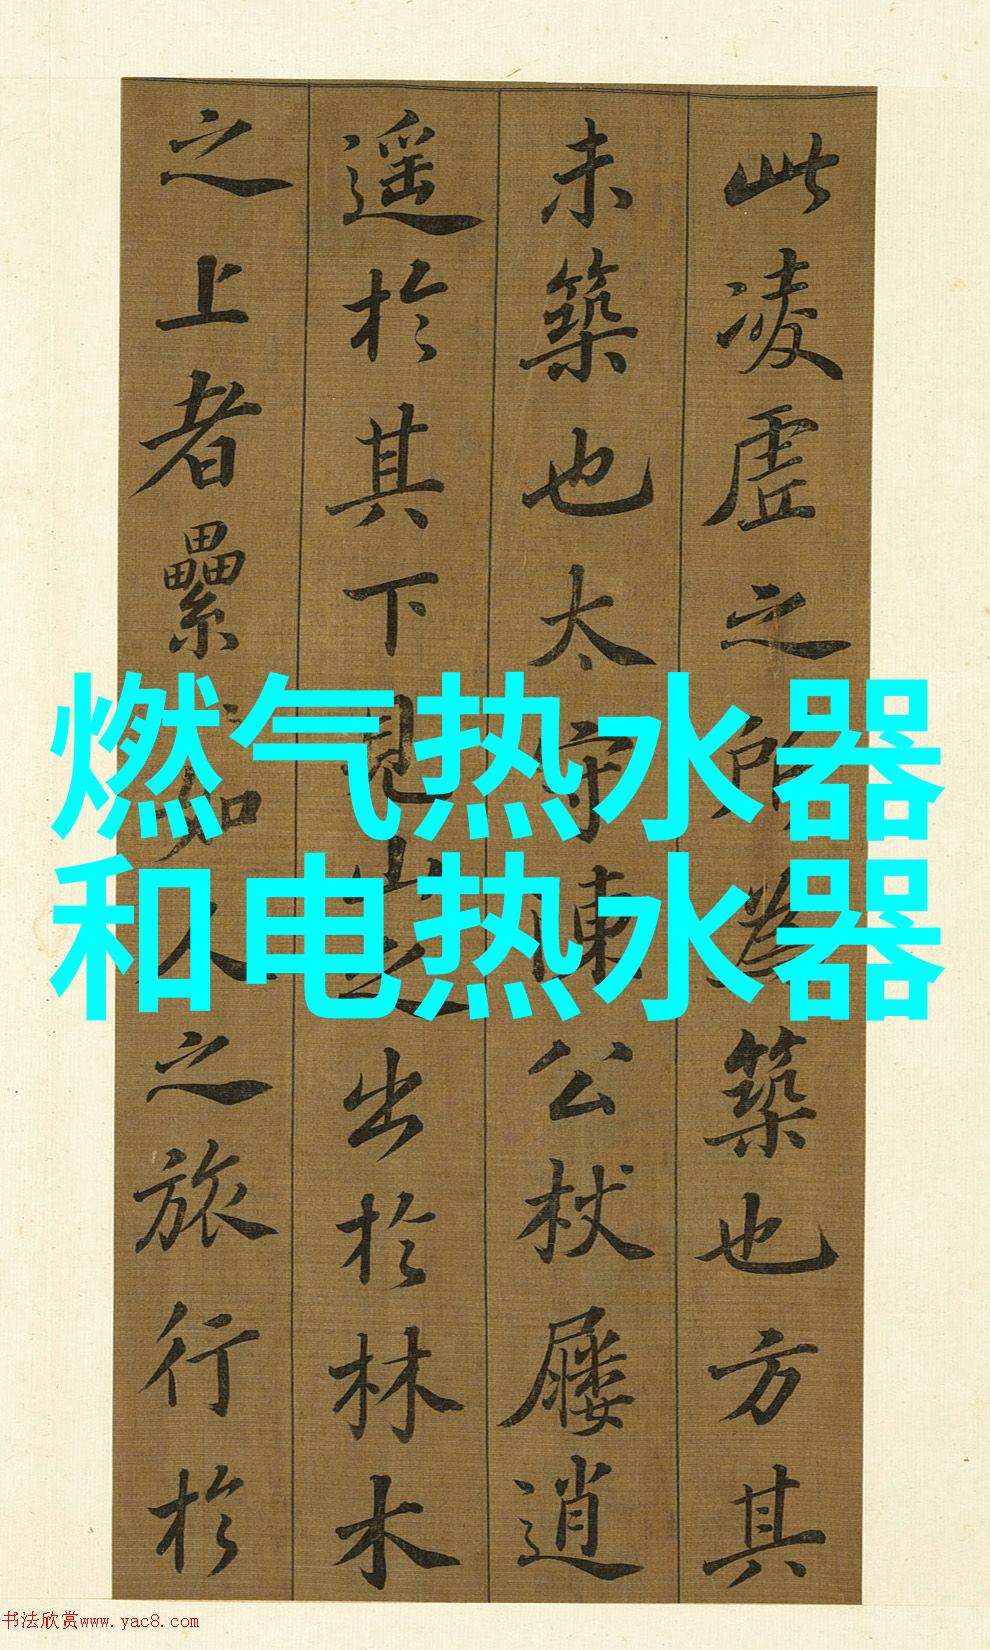 此凌虛之所為築也方其
未築也太守陳公杖屨逍
遥於其下見山之出於林木
之上者纍〻如人之旅行於
燃气热水器
和电热水器
书法欣赏www.yac8.com